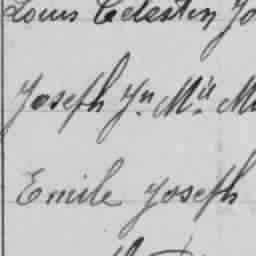 Louis Célestin Jo
Joseph Jn. Mie. M
Emile Joseph